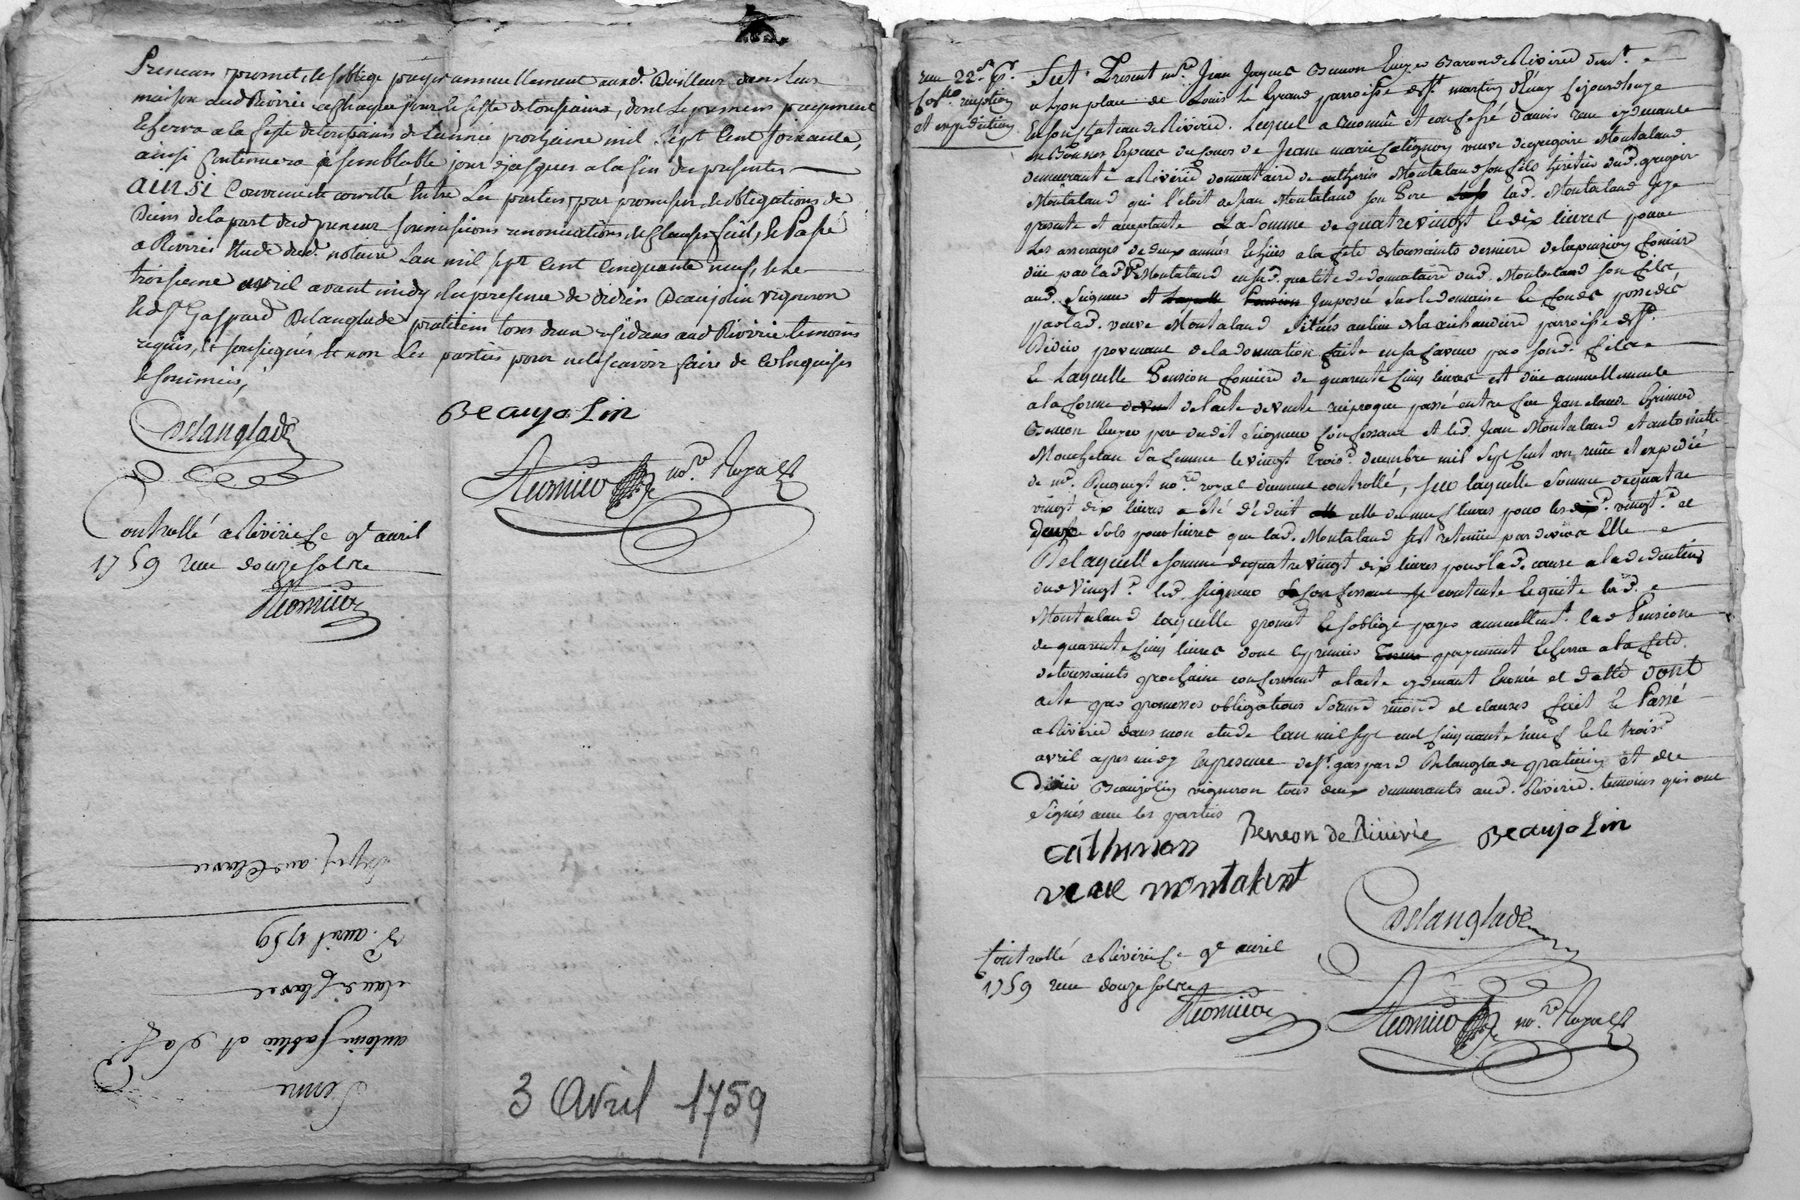 preneurs promet, se soblige payer annuellement auxd. Bailleurs dans leur
maison aud Rivirie a chaque jour et feste de toussains, dont le premier payement
se ferra a la feste de toussains de lannée prochaine mil sept cent soixante,
ainsi continuera a semblable jour jusques a la fin des presentes
ainsi Convenu et arretté Entre les parties par promesses, et obligations de
Biens de la part dud preneur soumissions renonciations, et Clauses fait, et Passé
a Rivirie Etude dud. notaire Lan mil sept Cent Cinquante neuf, et le
troisieme avril avant midy En presence de didier Beaujolin vigneron
et de sr. Gaspard Delanglade praticien tous deux residans aud Rivirie temoins
requis, et soussignés, et non les parties pour ne le scavoir faire de ce Enquises
et sommées,
Delanglade
Beaujolin
nore. Royal
Controllé a Riviriele 9e avril
1759 reçu douze sols
Bayl. aud Clavel
3e. avril 1759
claude Clavel
antoine
Ferme
3 Avril 1759
reçu 22s.
et expedition
Fut Present mre. Jean Jaques Baron de Riviriè demt.
a Lyon place de Louis Le grand parroisse de st. martin d'Enay
En son chateau de Riviriè. Lequel a reconnu et confessé d'avoir reçu cydevant
En Bonnes Especes du cours de Jeanne marie veuve de gregoire Montaland
demeurante a Riviriè donnataire de Montaland son fils heritier dud. gregoire
Montaland qui l'étoit de Jean Montaland son Pere lad. Montaland icy
presente et acceptante La somme de quatre vingt et dix livres pour
Les arrerages de deux années Echües a la fete de toussaints derniere de la pension fonciere
düe par lad ve Montaland en sad. qualité de donnataire dud. Montaland son fils
aud. Seigneur et Laquelle Pension Imposée sur le domaine et fonds possedés
par lad. veuve Montaland situés au lieu de la parroisse de st.
Didier provenant de la donnation faite en sa faveur par sond. fils
Laquelle Pension fonciere de quarente cinq livres est düe annuellement
a la forme de l'acte de vente reciproque passé entre feu Jean claude
pere dudit Seigneur Confessant et led. Jean Montaland et antoinette
sa femme le vingt trois decembre mil sept cent onze reçu et expedié
de me. nore. royal duement controllé, sur laquelle somme de quatre
vingt dix livres a été déduit celle de neuf livres pour les vingt. et
deux sols pour livres que lad. Montaland s'est retenüe par devers Elle
De laquelle somme de quatre vingt dix livres pour lad. cause a la deduction
dud Vingt. led. seigneur Confessant se contente et quitte lad.
Montaland laquelle promet et soblige payer annuellemt. lad Pension
de quarente cinq livres dont le premier payement se ferra a la fete
de toussaints prochaine conformemt. a l'acte cydevant Enoncé et datté dont
acte par promesses obligations soumd. renond. et clauses fait et Passé
a Riviriè dans mon etude l'an mil sept cent cinquante neuf et le trois
avril apres midy En presence de sr. gaspard Delanglade praticien et de
didier Beaujolin vigneron tous deux demeurants aud. Riviriè. temoins qui ont
signés avec les parties
Beneon de Riuirie Beaujolin
veuve montaland
Delanglade
Controllé a Riviriele 9e avril
1759 reçu douze sols
nore. Royal